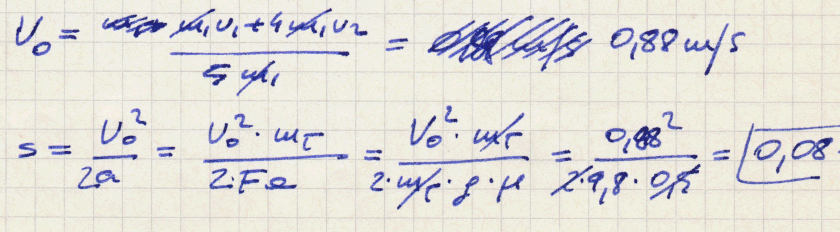 V₀ = (m₁v₁ + 4m₁v₂) / (5m₁) = 0,88 m/s
s = V₀² / 2a = V₀² · m_T / 2·F_a = V₀² · m_T / 2·m_T·g·μ = 0,88² / 2·9,8·0,5 = 0,08